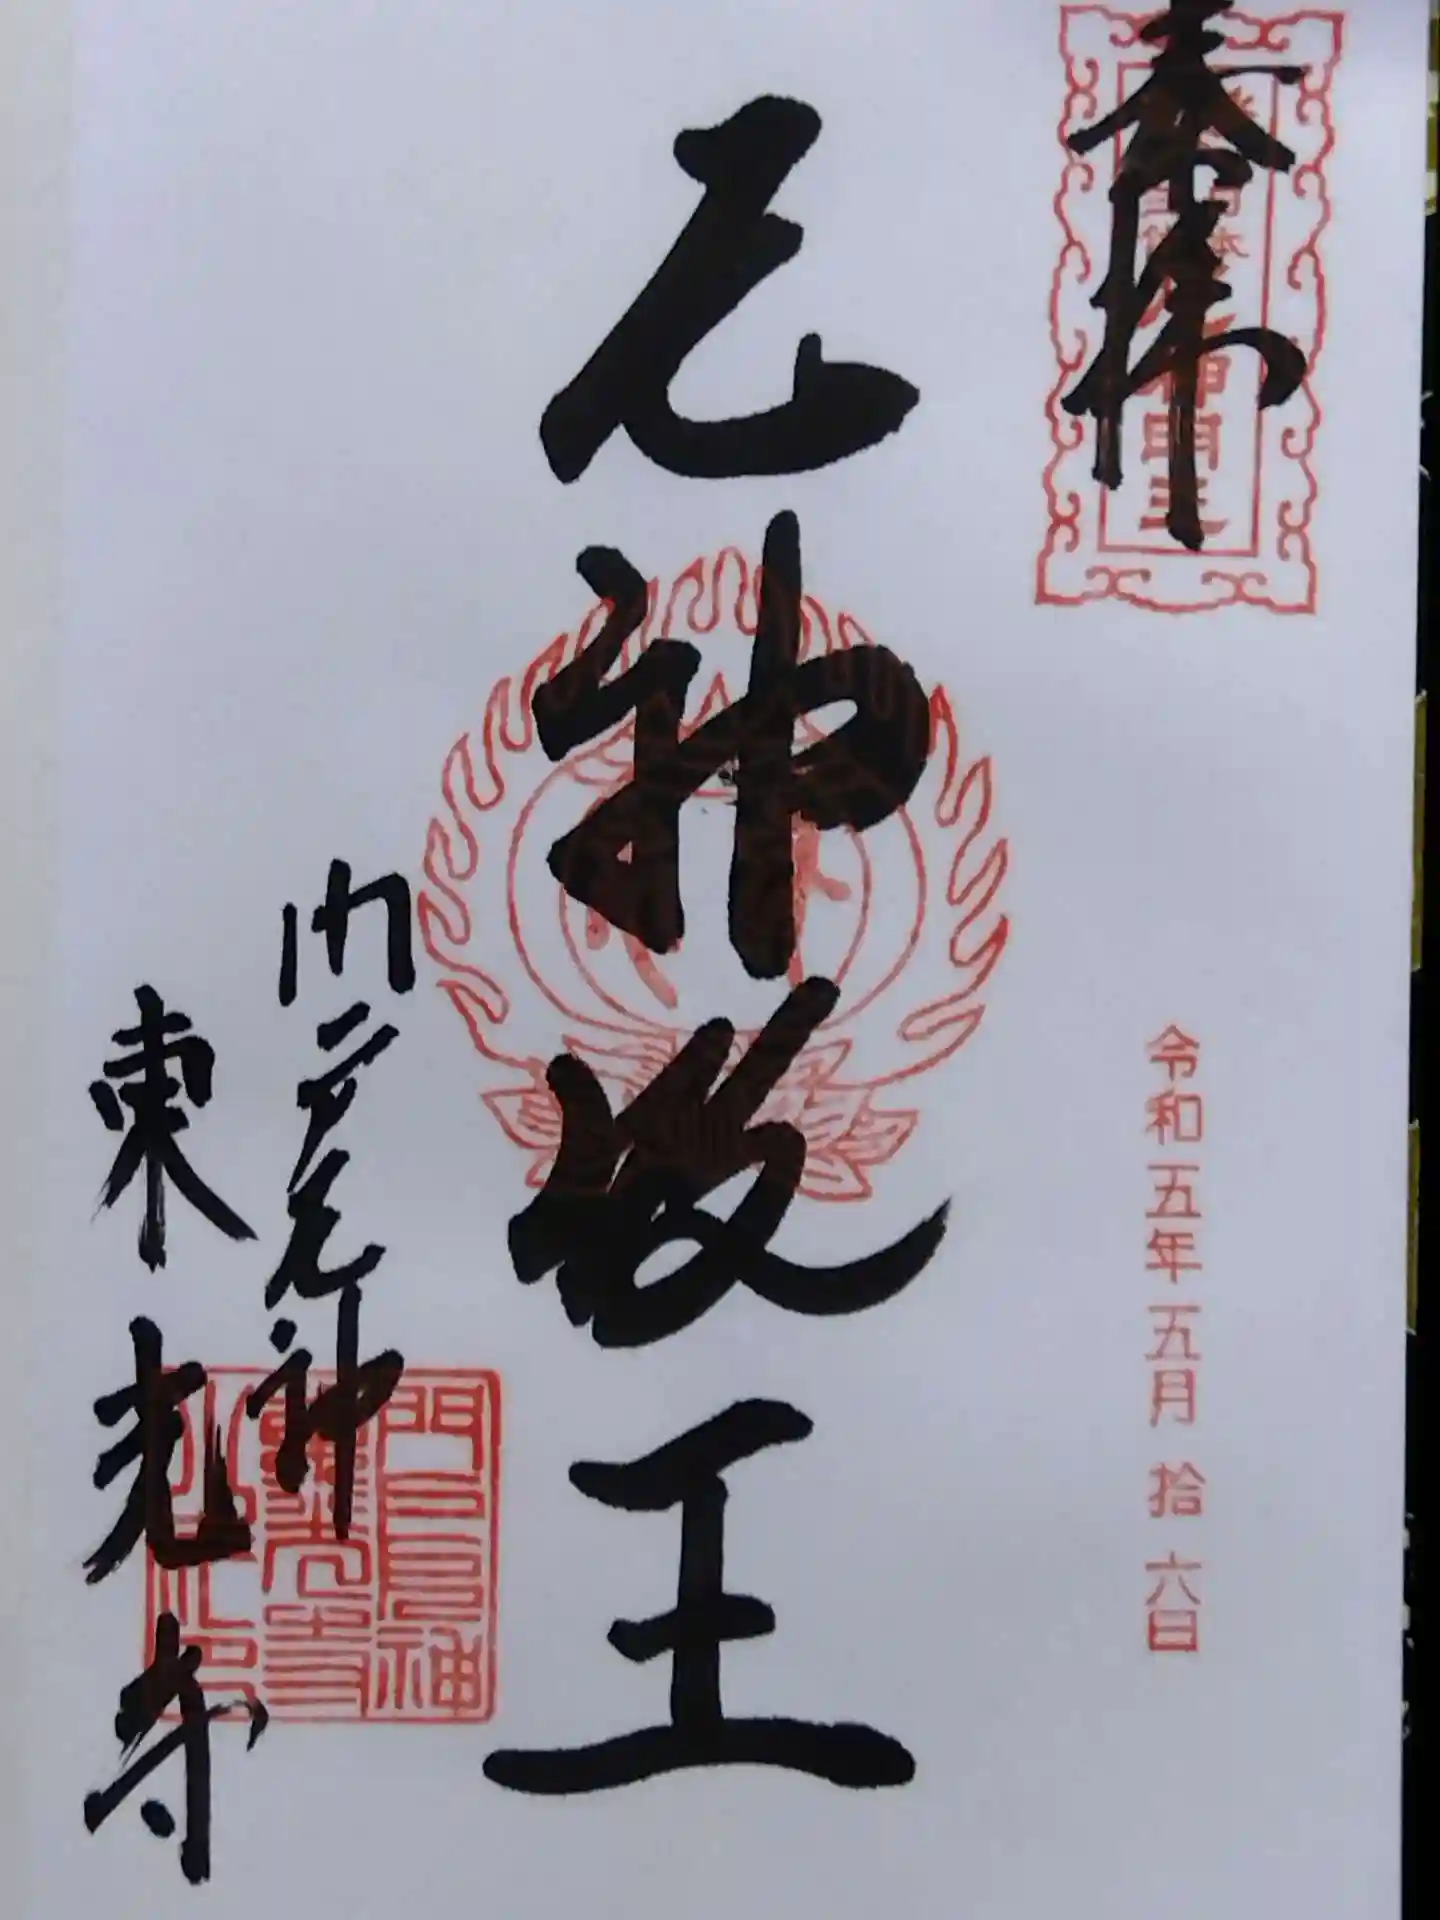 奉拝
厄神明王
令和五年五月拾六日
門戸厄神
東光寺
門戸厄神
東光寺